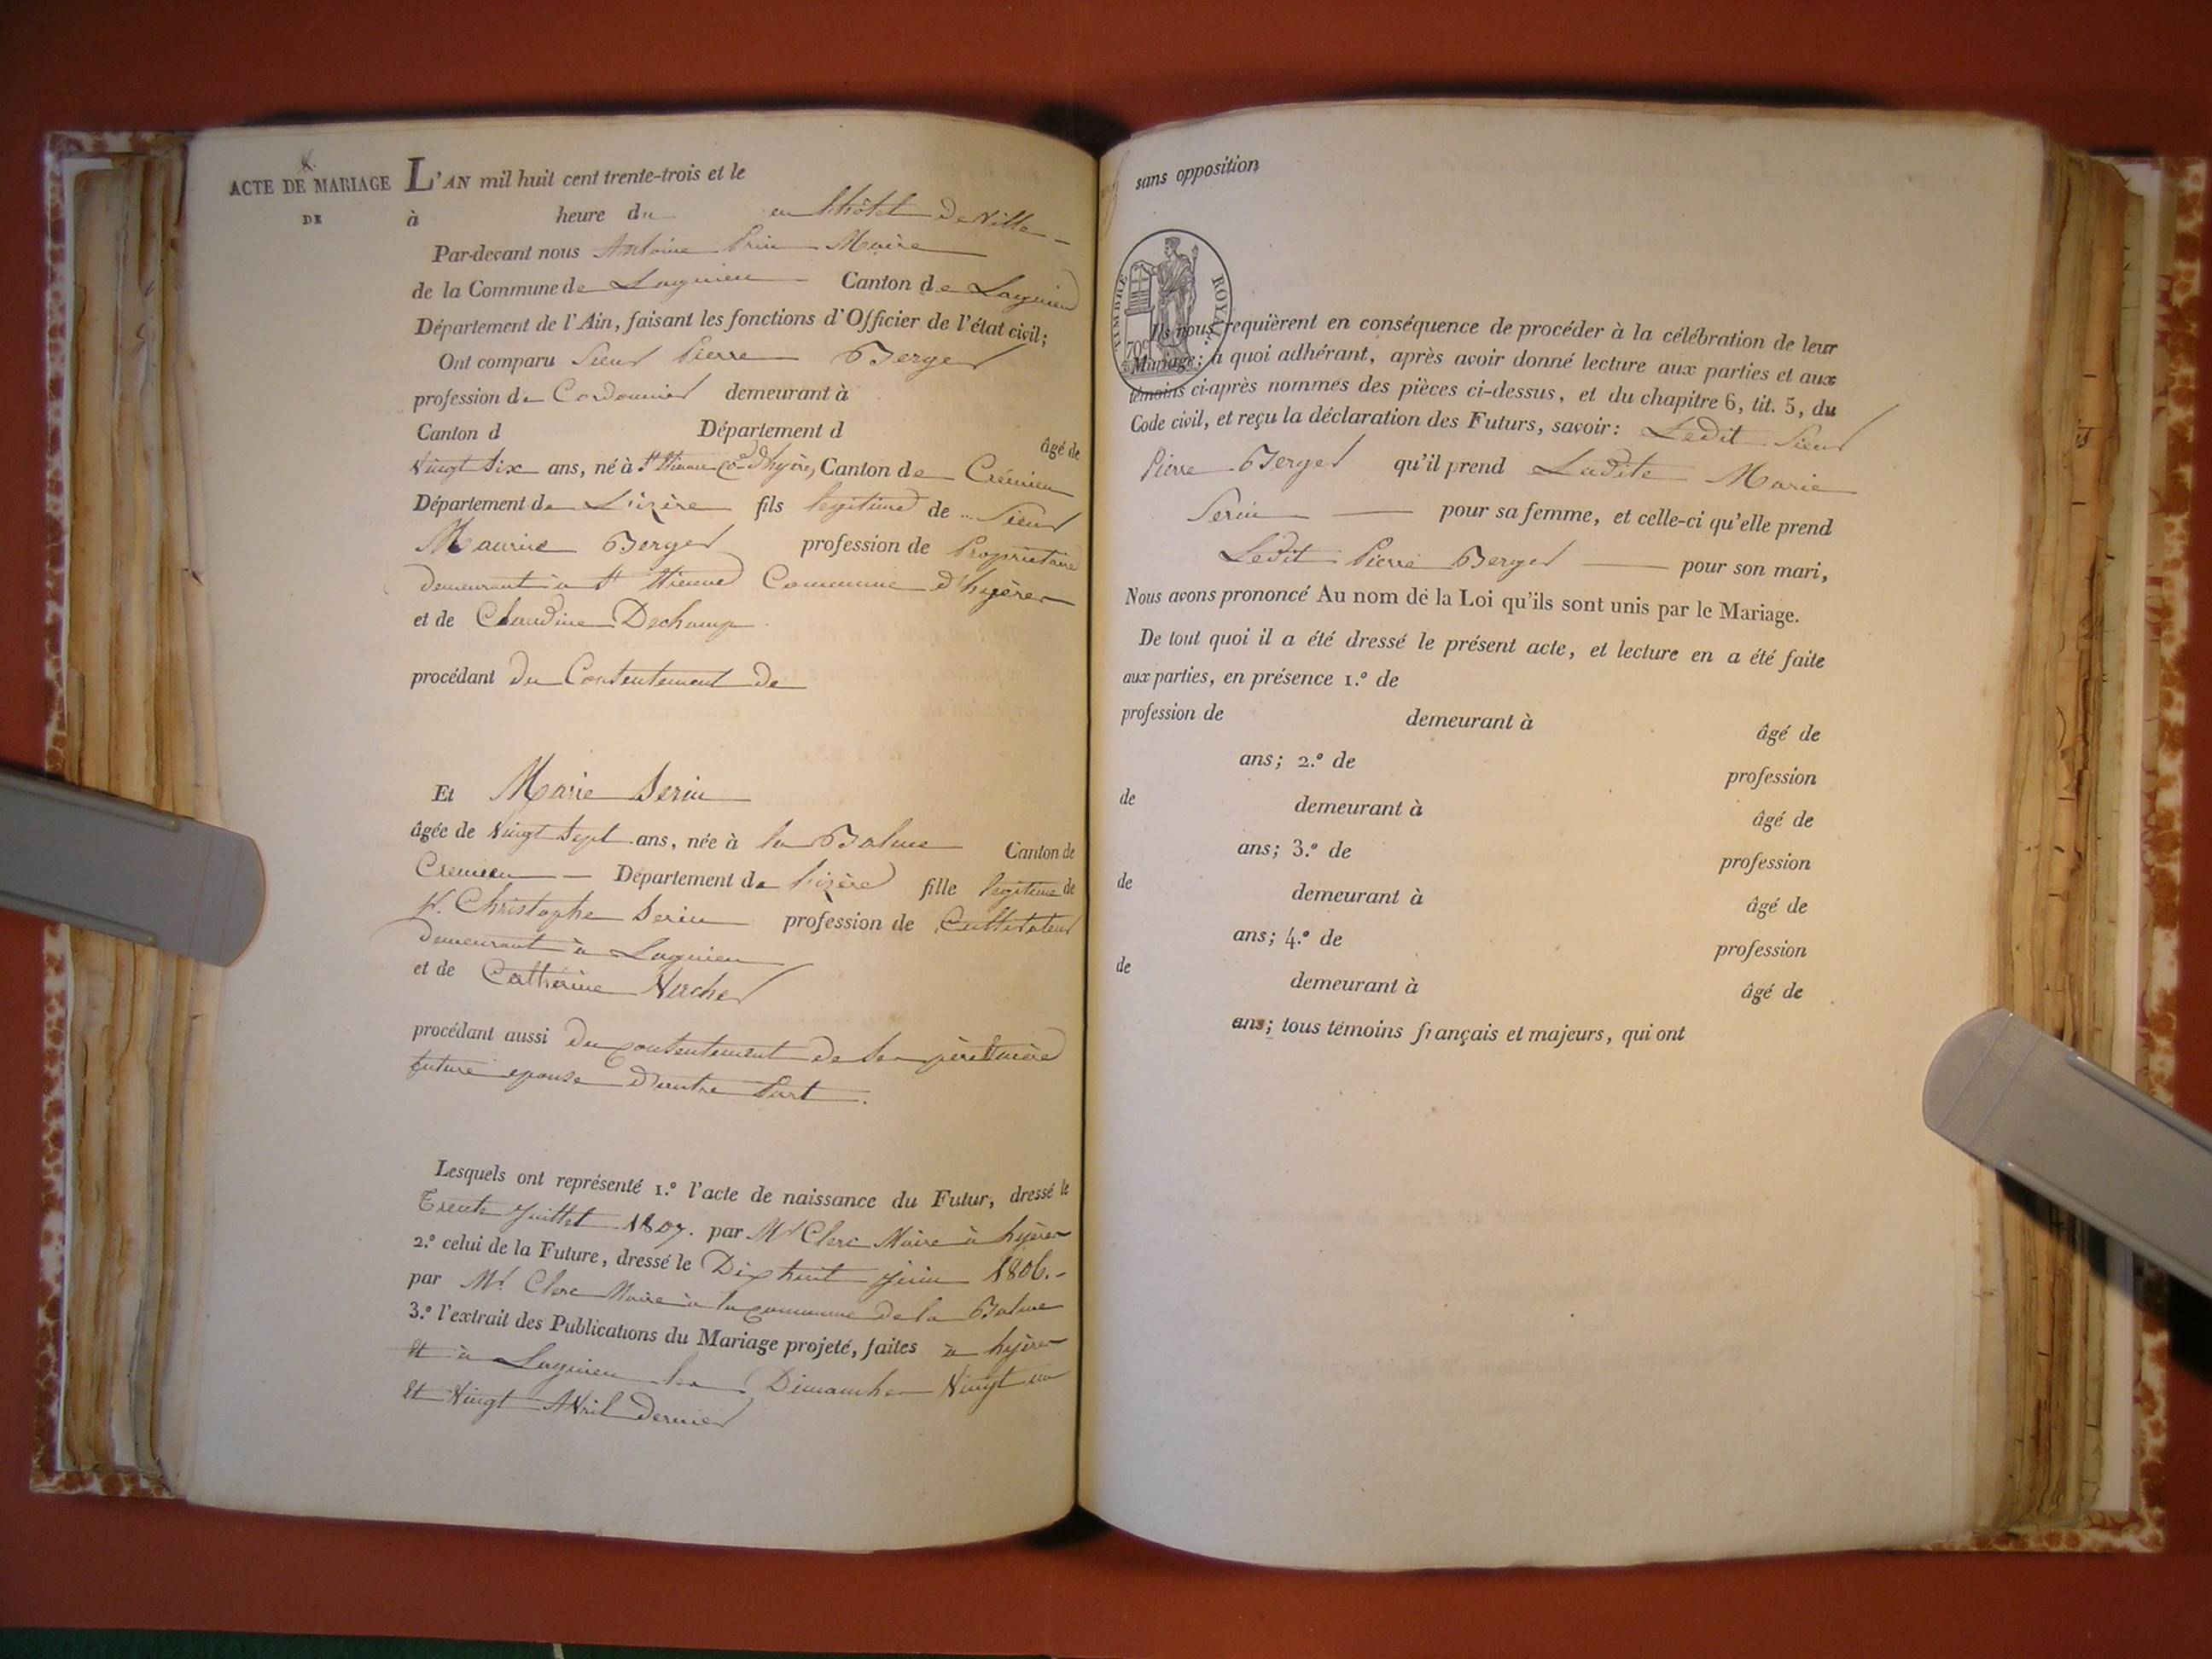 ACTE DE MARIAGE
DE
L'AN mil huit cent trente-trois et le
à heure du en l'hôtel de Ville
Par-devant nous Antoine Prin Maire
de la Commune de Lagnieu Canton de Lagnieu
Département de l'Ain, faisant les fonctions d'Officier de l'état civil;
Ont comparu Sieur Pierre Berger
profession de Cordonnier demeurant à
Canton d Département d âgé de
Vingt six ans, né à St Etienne Cne d'hyères, Canton de Crémieu
Département de L'izère fils legitime de Sieur
Maurice Berger profession de Propriétaire
demeurant à St Etienne Commune d'hyères
et de Claudine Dechamp
procédant du Consentement de
Et Marie Serin
âgée de Vingt Sept ans, née à la Balme Canton de
Cremieu Département de l'izère fille legitime de
Sr. Christophe Serin profession de Cultivateur
demeurant à Lagnieu
et de Cathérine
procédant aussi du consentement de ses père & mère
future epouse d'autre Part.
Lesquels ont représenté 1.º l'acte de naissance du Futur, dressé le
Trente Juillet 1807. par Mr Clerc Maire à hyères
2.º celui de la Future, dressé le Dix huit Juin 1806.
par Mr. Clerc Maire à la commune de la Balme
3.º l'extrait des Publications du Mariage projeté, faites à hyères
et à Lagnieu les Dimanches Vingt un
et Vingt Avril dernier
sans opposition
TIMBRE ROYAL
70c
Ils nous requièrent en conséquence de procéder à la célébration de leur
Mariage; à quoi adhérant, après avoir donné lecture aux parties et aux
témoins ci-après nommés des pièces ci-dessus, et du chapitre 6, tit. 5, du
Code civil, et reçu la déclaration des Futurs, savoir: Ledit Sieur
Pierre Berger qu'il prend Ladite Marie
Serin pour sa femme, et celle-ci qu'elle prend
Ledit Pierre Berger pour son mari,
Nous avons prononcé Au nom de la Loi qu'ils sont unis par le Mariage.
De tout quoi il a été dressé le présent acte, et lecture en a été faite
aux parties, en présence 1.º de
profession de demeurant à âgé de
ans; 2.º de profession
de demeurant à âgé de
ans; 3.º de profession
de demeurant à âgé de
ans; 4.º de profession
de demeurant à âgé de
ans; tous témoins français et majeurs, qui ont